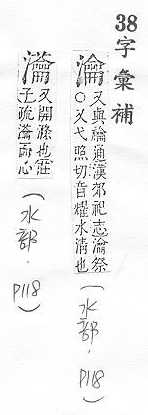 38字彙補
瀹又與禴通漢郊祀志瀹祭
○又弋照切音燿水清也
(水部.P118)
瀹又開滌也莊
子疏瀹而心
(水部.P118)